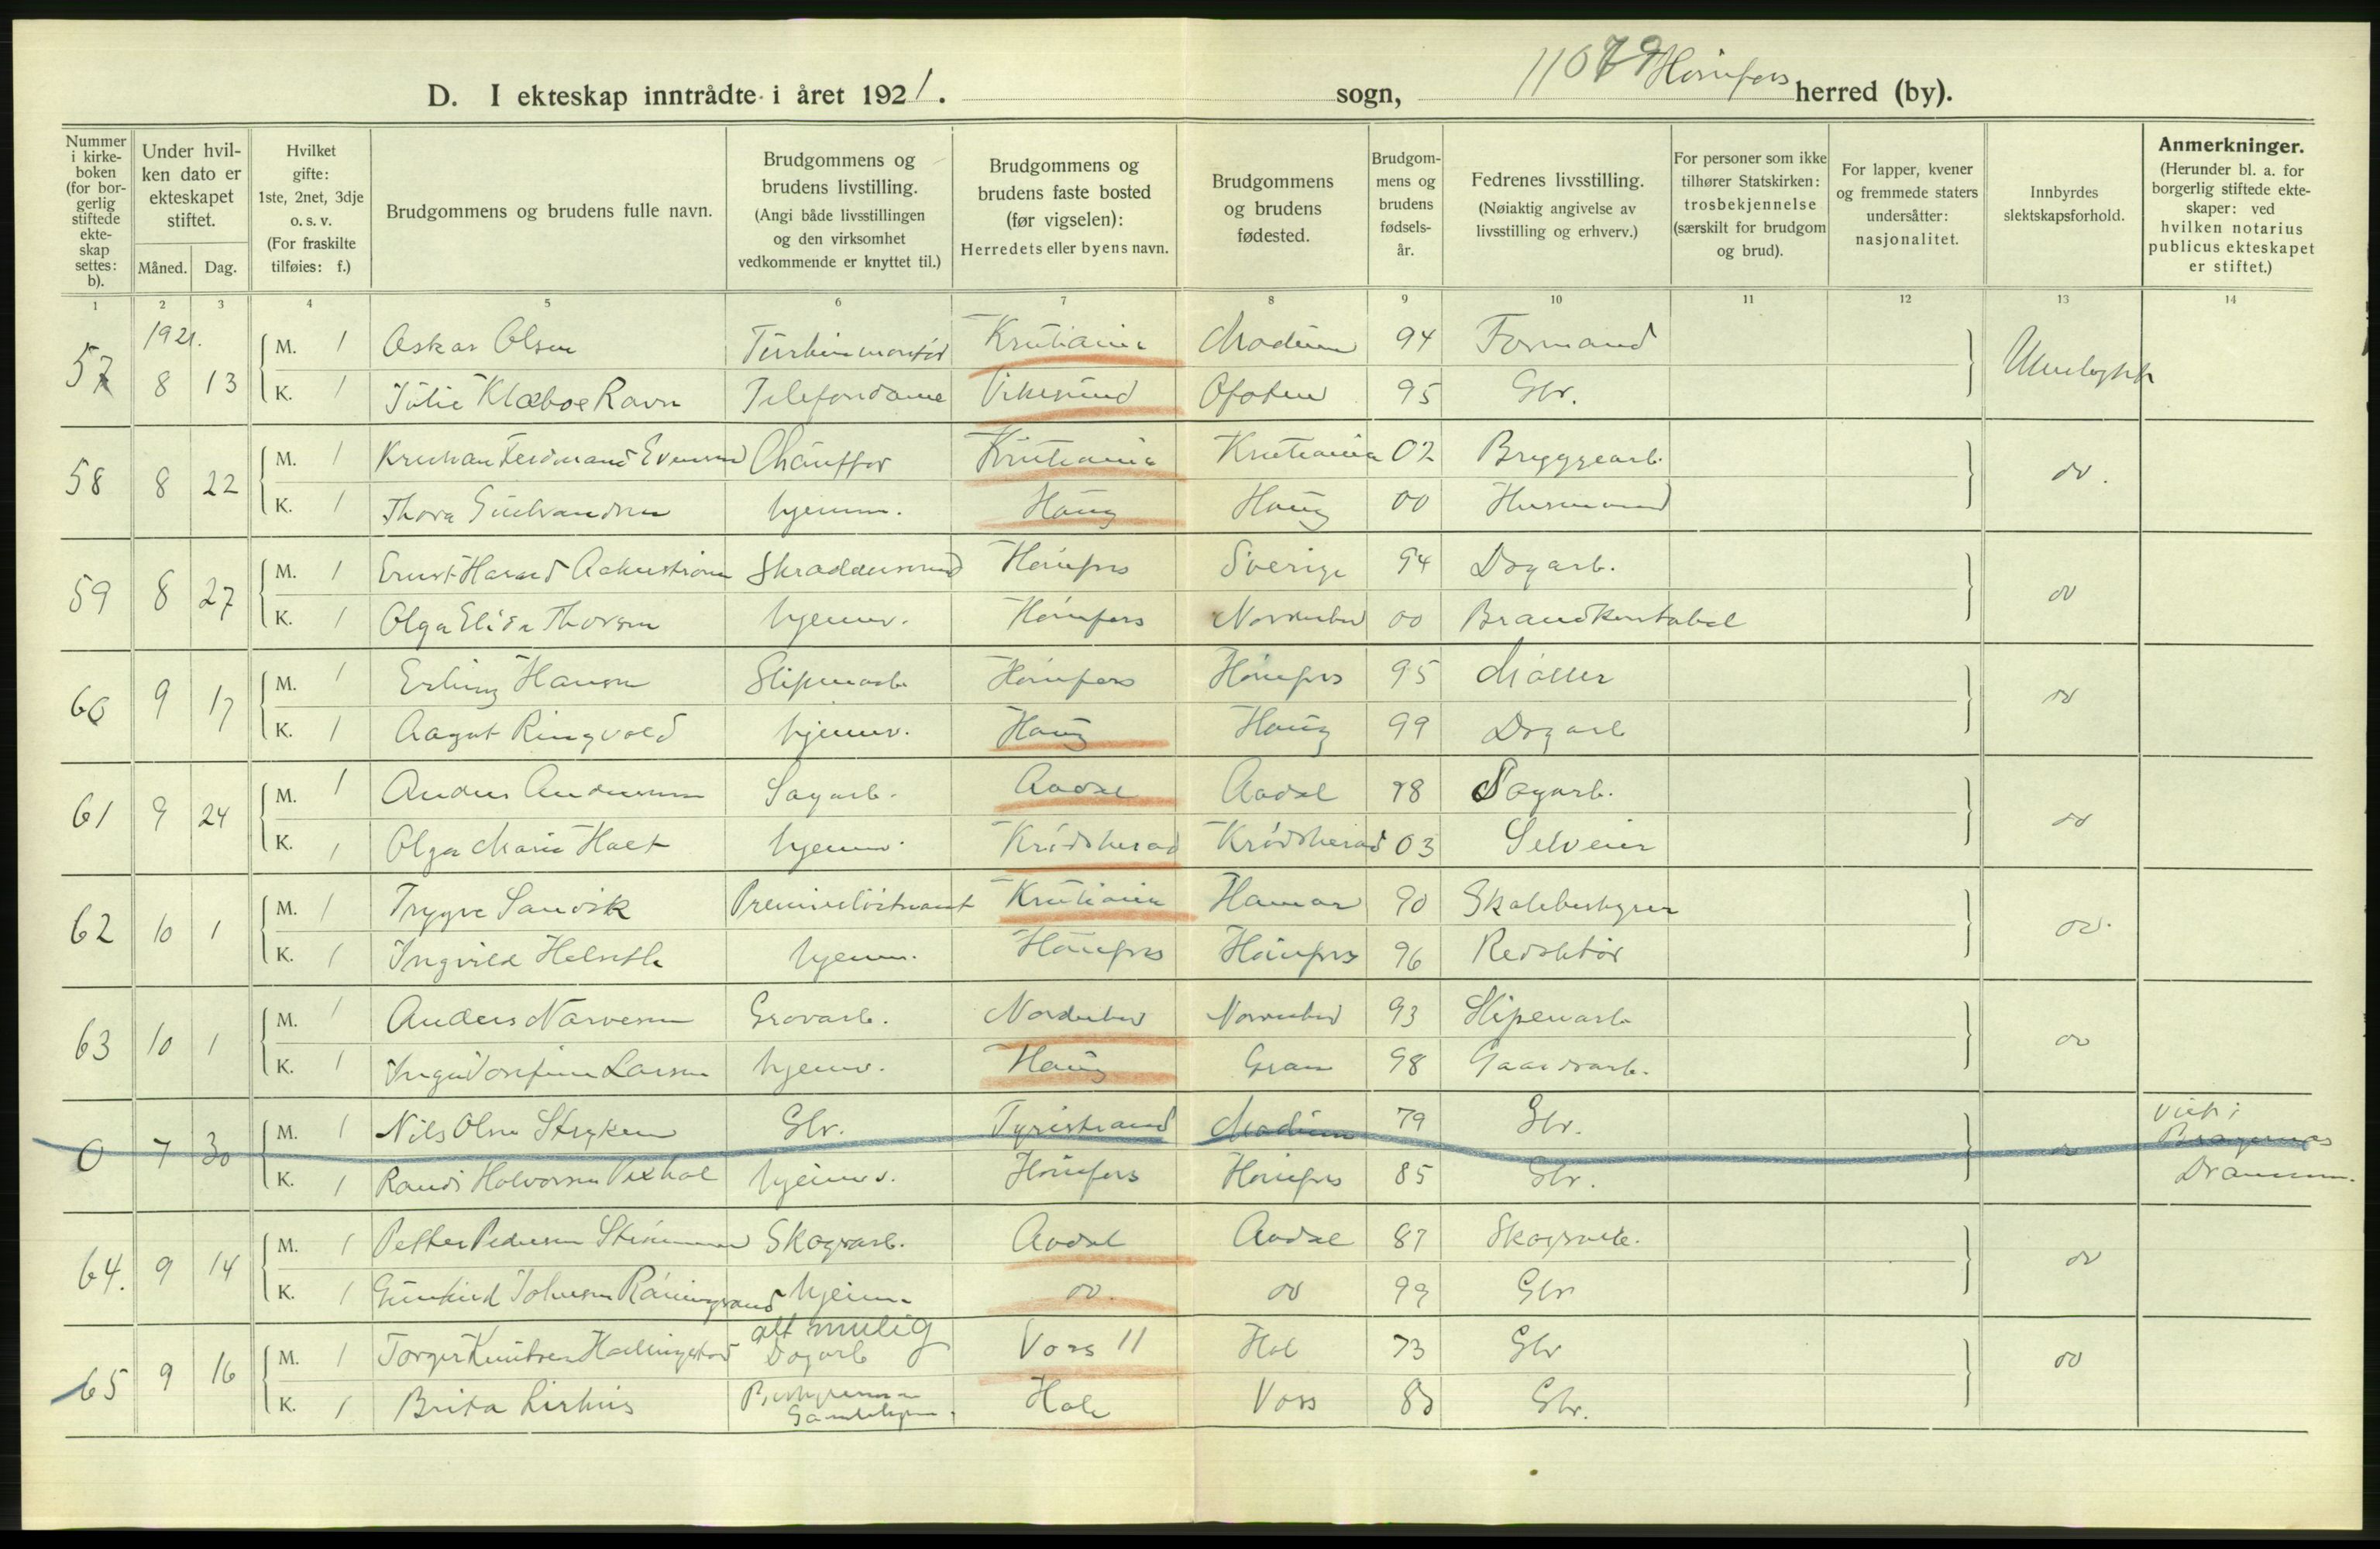 D. I ekteskap inntrådte i året 1921. sogn, Hønefoss herred (by).
Nummer i kirkeboken (for borgerlig stiftede ekteskap settes: b).
Under hvilken dato er ekteskapet stiftet.
Måned. Dag.
Hvilket gifte: 1ste, 2net, 3dje o. s. v. (For fraskilte tilføies: f.)
Brudgommens og brudens fulle navn.
Brudgommens og brudens livstilling. (Angi både livsstillingen og den virksomhet vedkommende er knyttet til.)
Brudgommens og brudens faste bosted (før vigselen): Herredets eller byens navn.
Brudgommens og brudens fødested.
Brudgommens og brudens fødselsår.
Fedrenes livsstilling. (Nøiaktig angivelse av livsstilling og erhverv.)
For personer som ikke tilhører Statskirken: trosbekjennelse (særskilt for brudgom og brud).
For lapper, kvener og fremmede staters undersåtter: nasjonalitet.
Innbyrdes slektskapsforhold.
Anmerkninger. (Herunder bl. a. for borgerlig stiftede ekteskaper: ved hvilken notarius publicus ekteskapet er stiftet.)
1 2 3 4 5 6 7 8 9 10 11 12 13 14
1921.
57 8 13 M. 1 Oskar Olsen Turbinmontør Kristiania Modum 94 Formand Ubeslegtet
K. 1 Julie Klæboe Ravn Telefondame Vikesund Ofoten 95 Gbr.
58 8 22 M. 1 Kristian Ferdinand Evensen Chauffør Kristiania Kristiania 02 Bryggearb. do.
K. 1 Thora Gulbrandsen hjemm. Haug Haug 00 Husmand
59 8 27 M. 1 Ernst Harard Skræddersvend Hønefoss Sverige 94 Dagarb. do
K. 1 Olga Elida Thorsen hjemmev. Hønefoss Norderhov 00 Brandkonstabel
60 9 17 M. 1 Erling Hansen Sliperiarb. Hønefoss Hønefoss 95 Møller do
K. 1 Aagot Ringvold hjemmev. Haug Haug 99 Dagarb
61 9 24 M. 1 Anders Andersen Sagarb. Aadal Aadal 98 Sagarb. do
K. 1 Olga Marie Holt hjemmev. Krødsherad Krødsherad 03 Selveier
62 10 1 M. 1 Trygve Sandvik Premierløitnant Kristiania Hamar 90 Skolebestyrer do.
K. 1 Ingvild hjemm. Hønefoss Hønefoss 96 Redaktør
63 10 1 M. 1 Anders Narvesen Gravarb. Norderhov Norderhov 93 Sliperiarb do
K. 1 Inga Josefine Larsen hjemmev. Haug Gran 98 Gaardsarb.
0 7 30 M. 1 Nils Olsen Stryken Gbr. Tyristrand Modum 79 Gbr. do Viet i Bragernes Drammen.
K. 1 Randi Halvorsen hjemmev. Hønefoss Hønefoss 85 Gbr.
64. 9 14 M. 1 Petter Pedersen Skogarb. Aadal Aadal 87 Skogarb. do
K. 1 Gunhild hjemm. do. do 99 Gbr
65 9 16 M. 1 Torger Knutsen alt mulig Dagarb Voss 11 Hol 73 Gbr do
K. 1 Brita Lirhus Hole Voss Gbr.